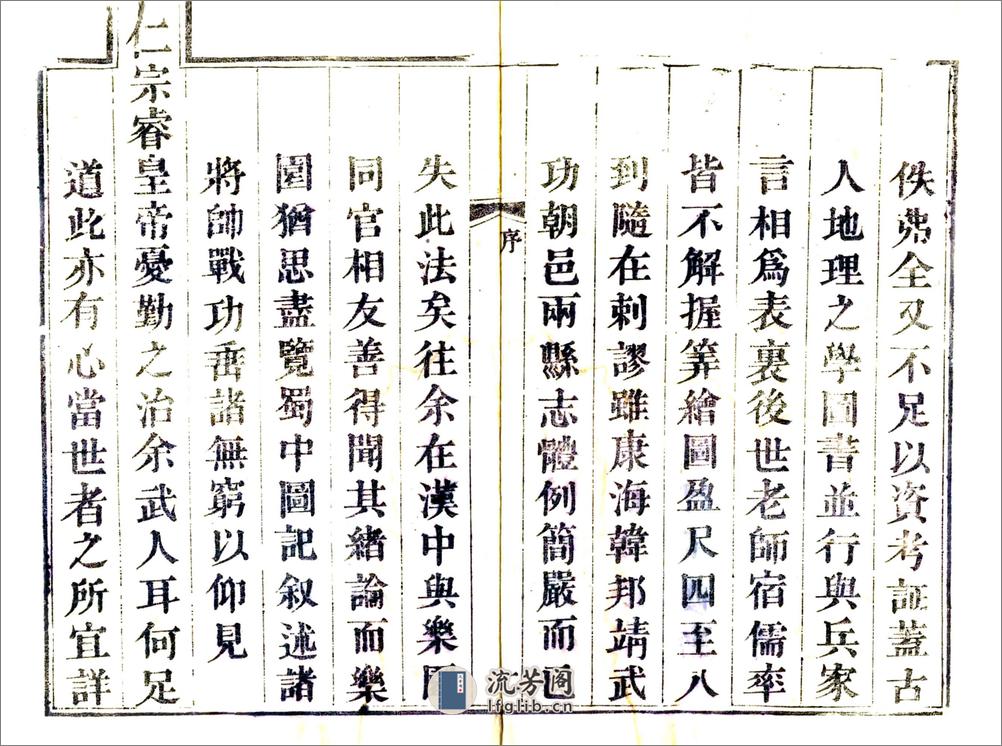 佚弗全又不足以資考証蓋古
人地理之學圖書並行與兵家
言相爲表裏後世老師宿儒率
皆不解握筭繪圖盈尺四至八
到隨在剌謬雖康海韓邦靖武
功朝邑兩縣志體例簡嚴而
序
失此法矣徃余在漢中與樂園
同官相友善得聞其緒論而樂
園猶思盡覽蜀中圖記叙述諸
將帥戰功垂諸無窮以仰見
仁宗睿皇帝憂勤之治余武人耳何足
道此亦有心當世者之所宜詳
流芳阁
lfglib.cn